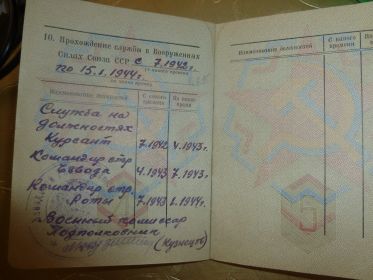 10. Прохождение службы в Вооруженных
Силах Союза ССР с 7.1942г.
с какого времени
по 15.1.1944г.
по какое время
Наименование должностей
С какого времени
По какое время
Служба на
должностях
Курсант 7.1942 4.1943г.
Командир стр.
взвода 4.1943 7.1943г.
Командир стр.
Роты 7.1943 1.1944г.
Военный комиссар
Подполковник
(Кузнецов)
Наименование должностей
С какого времени